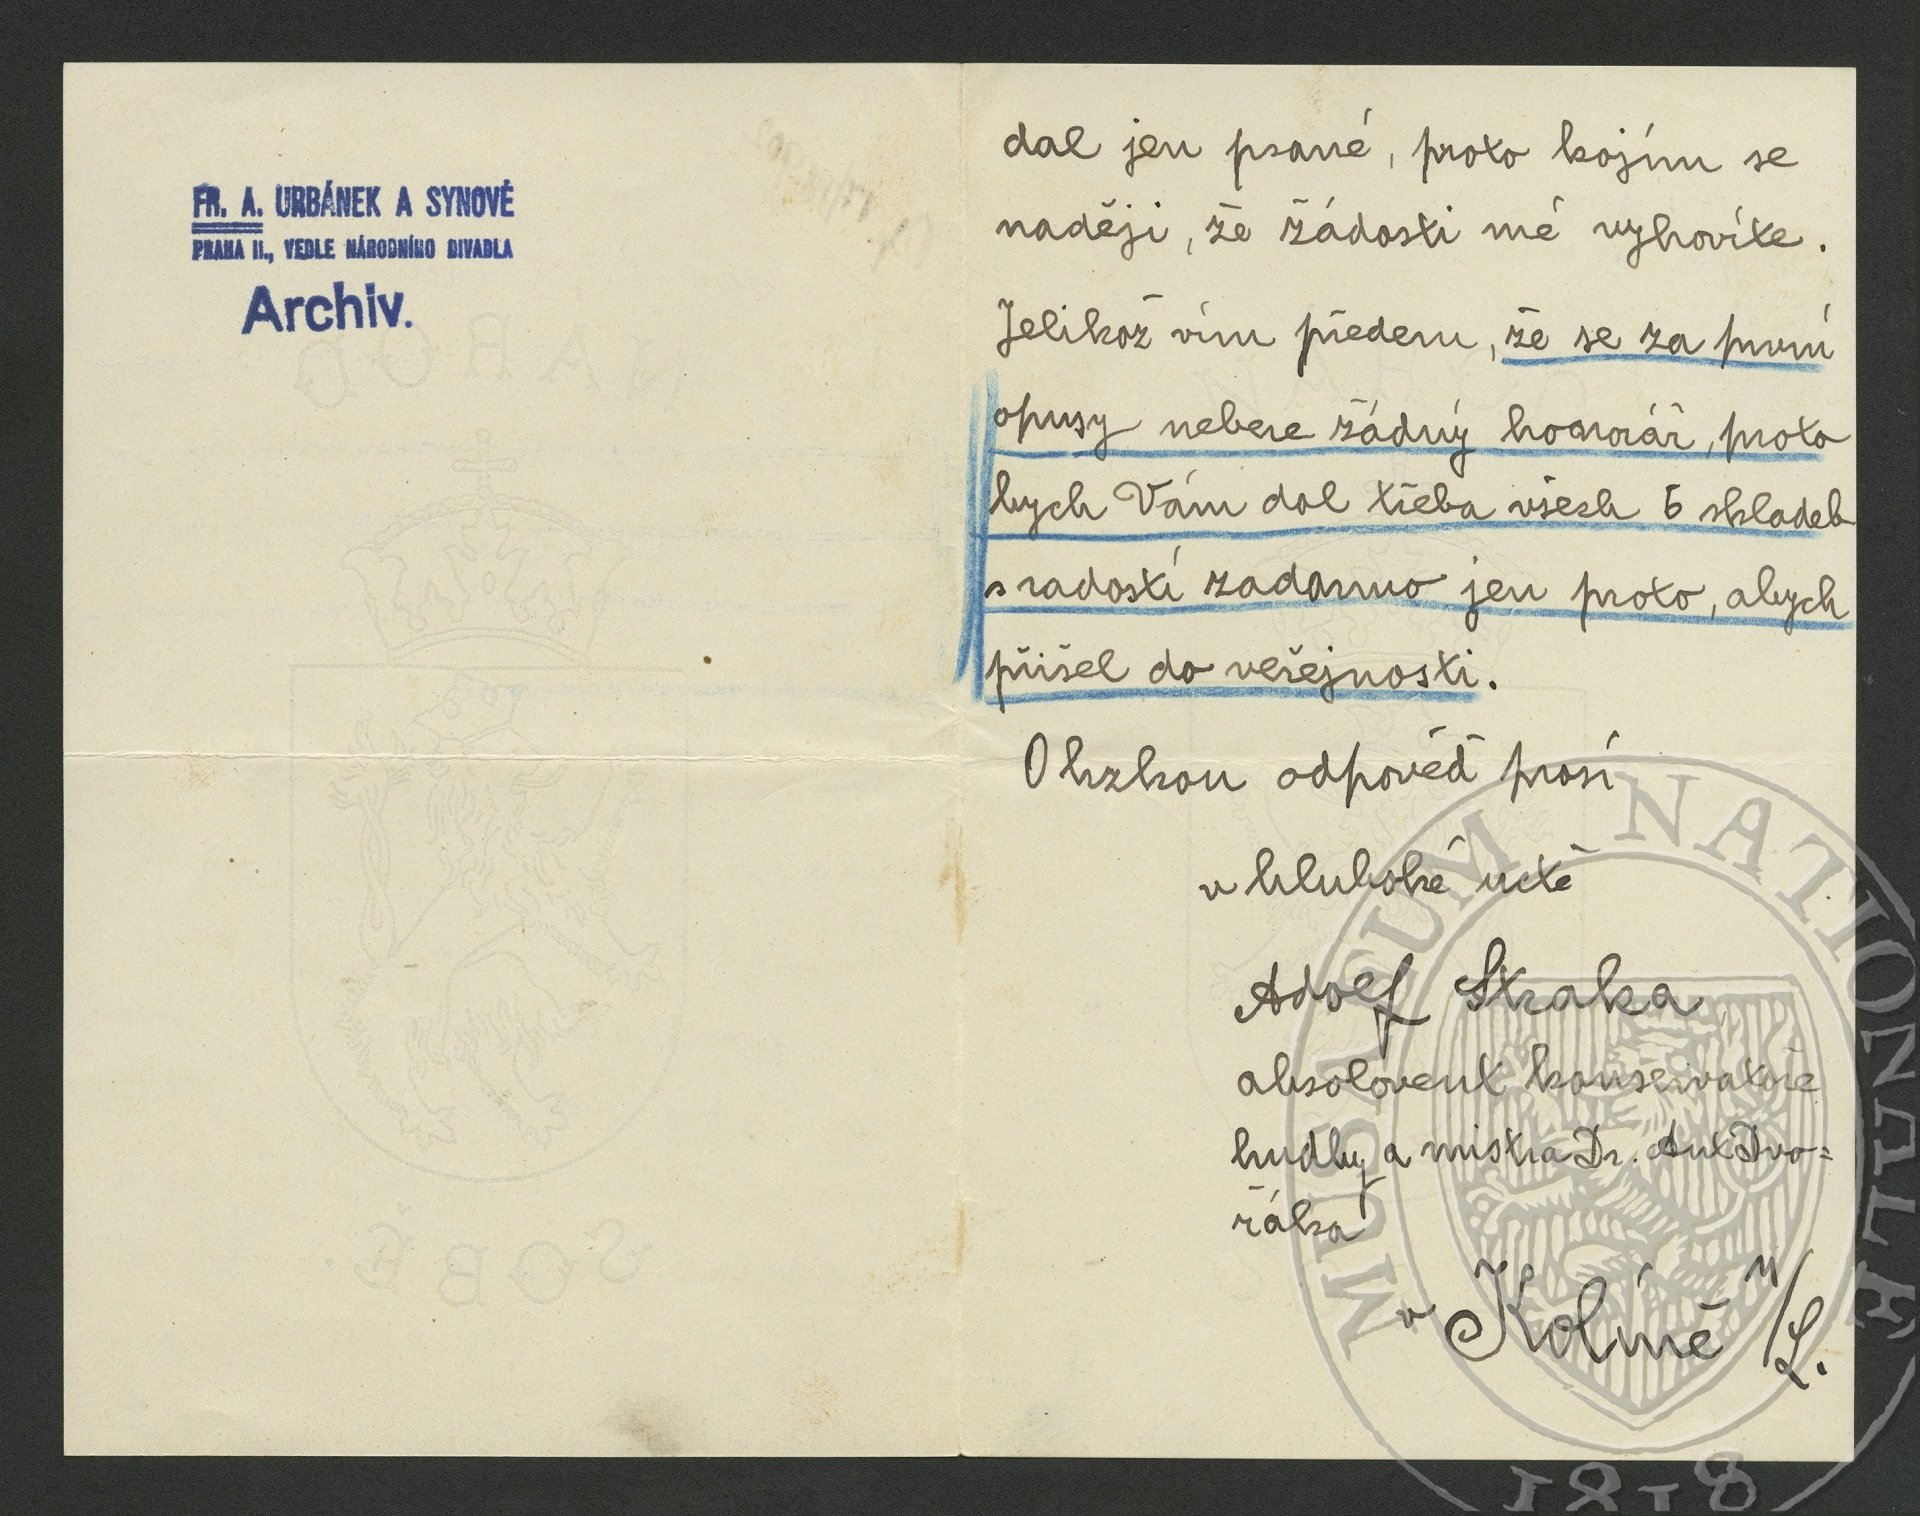 FR. A. URBÁNEK A SYNOVÉ
PRAHA II., VEDLE NÁRODNÍHO DIVADLA
Archiv.
NÁROD
SOBĚ
dal jen psané, proto kojím se
naději, že žádosti mé vyhovíte.
Jelikož vím předem, že se za první
opusy nebere žádný honorář, proto
bych Vám dal třeba všech 5 skladeb
s radostí zadarmo jen proto, abych
přišel do veřejnosti.
O brzkou odpověď prosí
v hluboké uctě
Adolf Straka
absolvent konservatoře
hudby a mistra Dr. Ant Dvo=
řáka
v Kolíně n/L.
MUSAEUM NATIONALE
1818